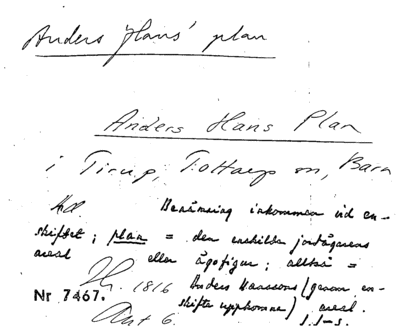 Anders Hans' plan
Anders Hans Plan
i Tirup, Tottarp sn, Bara
Benämning inkommen vid en-
skiftet; plan = den enskilda jordägarens
areal eller ägofigur; alltså =
1816 Anders Hanssons (genom en-
Nr 7467. skifte uppkomna) areal.
Art 6.